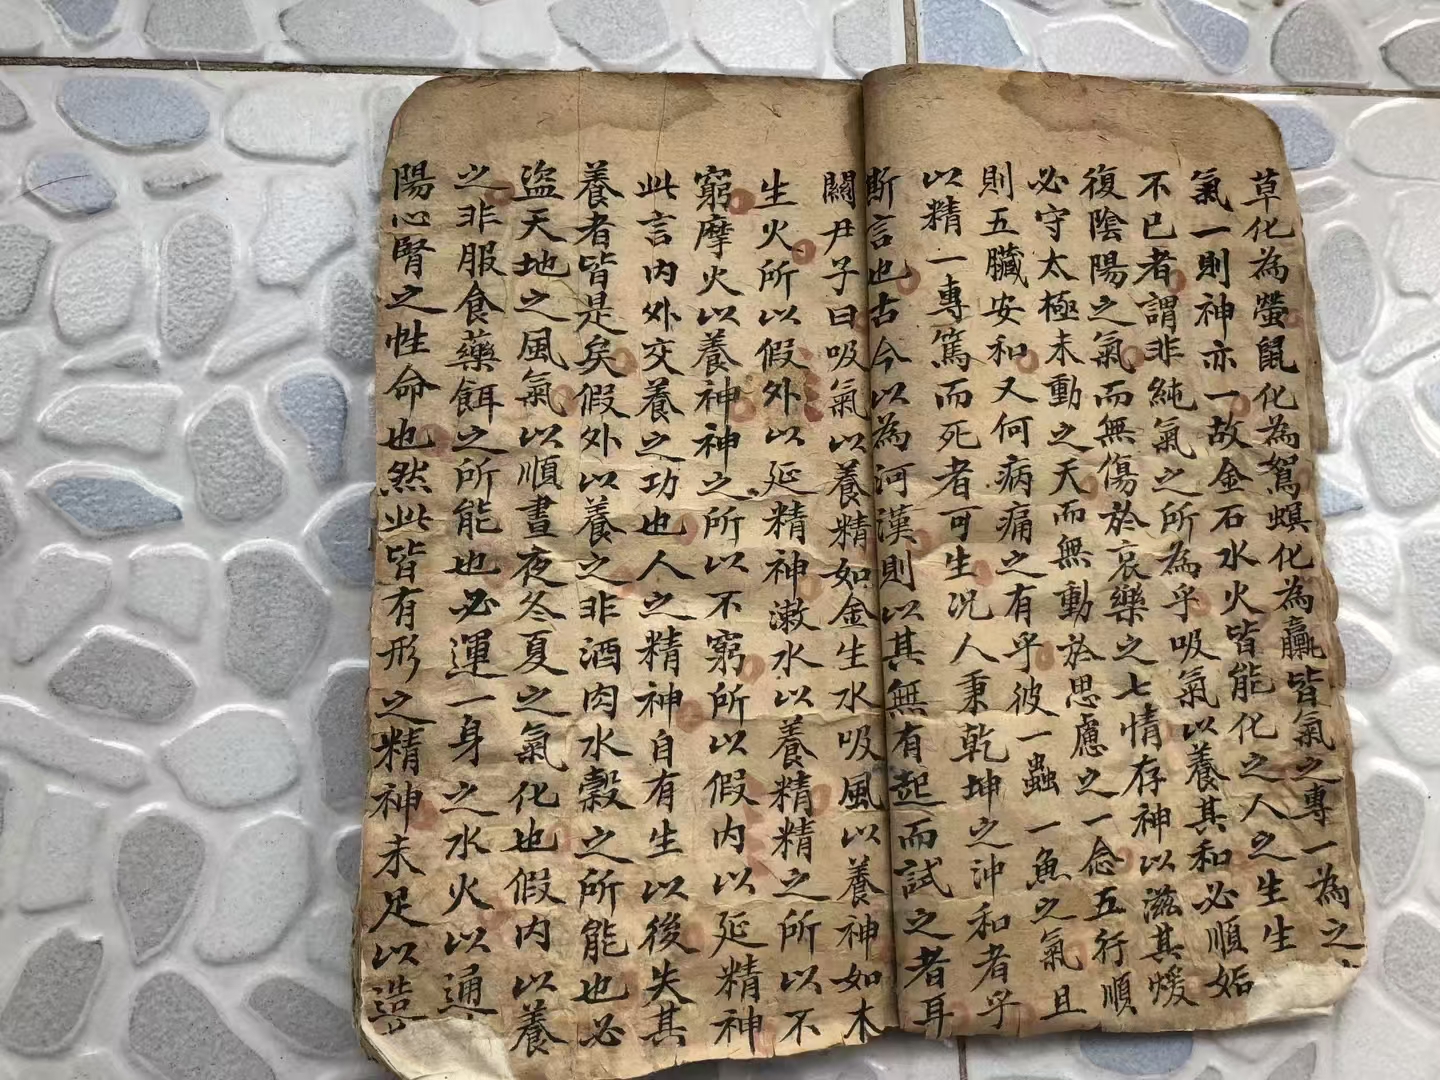 草化為螢鼠化為鴽螟化為蠃皆氣之專一為之
氣一則神亦一故金石水火皆能化之人之生生
不已者謂非純氣之所為乎吸氣以養其和必順姤
復陰陽之氣而無傷於哀樂之七情存神以滋其煖
必守太極未動之天而無動於思慮之一念五行順
則五臟安和又何病痛之有乎彼一蟲一魚之氣且
以精一專篤而死者可生况人秉乾坤之沖和者乎
斷言也古今以為河漢則以其無有起而試之者耳
關尹子曰吸氣以養精如金生水吸風以養神如木
生火所以假外以延精神漱水以養精精之所以不
窮摩火以養神神之所以不窮所以假內以延精神
此言內外交養之功也人之精神自有生以後失其
養者皆是矣假外以養之非酒肉水穀之所能也必
盜天地之風氣以順晝夜冬夏之氣化也假內以養
之非服食藥餌之所能也必運一身之水火以通
陽心腎之性命也然此皆有形之精神未足以造